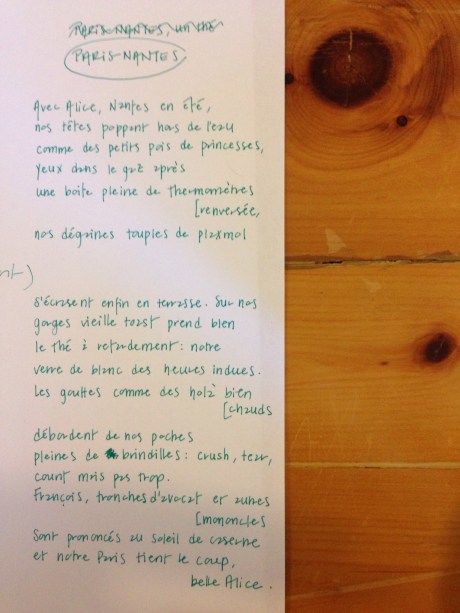 PARIS-NANTES,
PARIS-NANTES
Avec Alice, Nantes en été,
nos têtes poppant hors de l'eau
comme des petits pois de princesses,
yeux dans le gaz après
une boîte pleine de thermomètres
[renversée,
nos dégaines souples de plaxmol
nt)
s'écrasent enfin en terrasse. Sur nos
gorges vieille toast prend bien
le thé à retardement : notre
verre de blanc des heures indues.
Les gouttes comme des holà bien
[chauds
débordent de nos poches
pleines de brindilles : crush, tear,
count mais pas trop.
François, tranches d'avocat et autres
[mononcles
sont prononcés au soleil de caserne
et notre Paris tient le coup,
belle Alice.